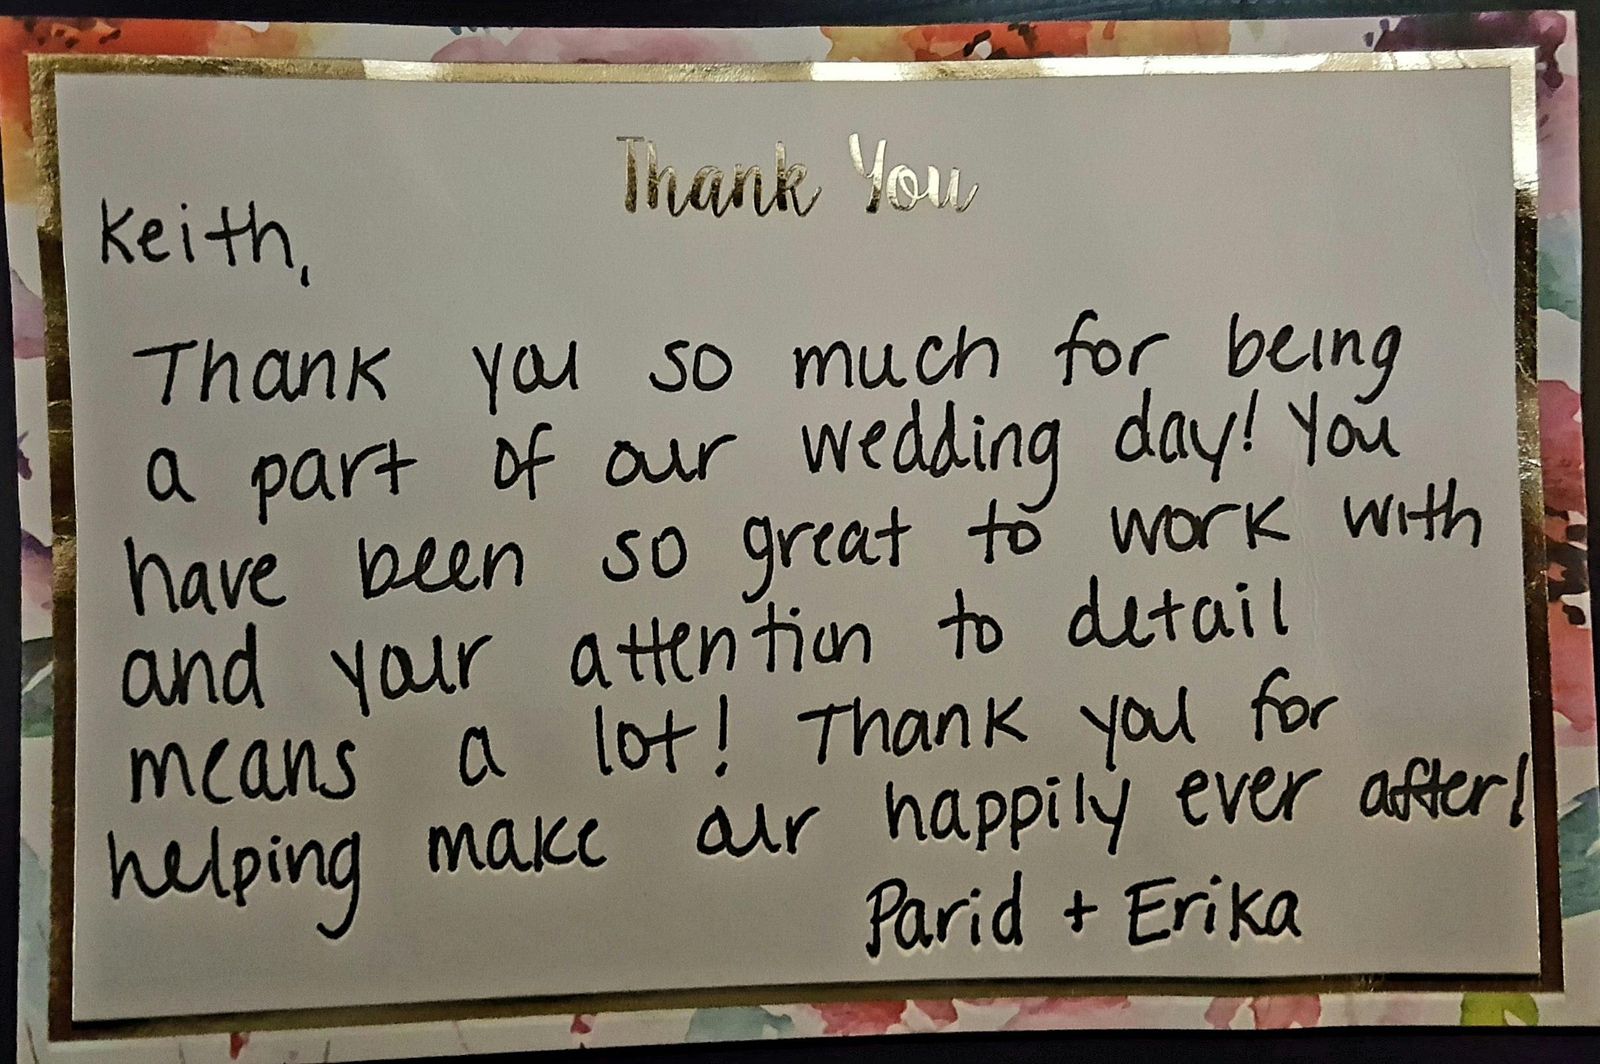 Thank You
Keith,
Thank you so much for being
a part of our wedding day! You
have been so great to work with
and your attention to detail
means a lot! Thank you for
helping make our happily ever after!
Parid + Erika